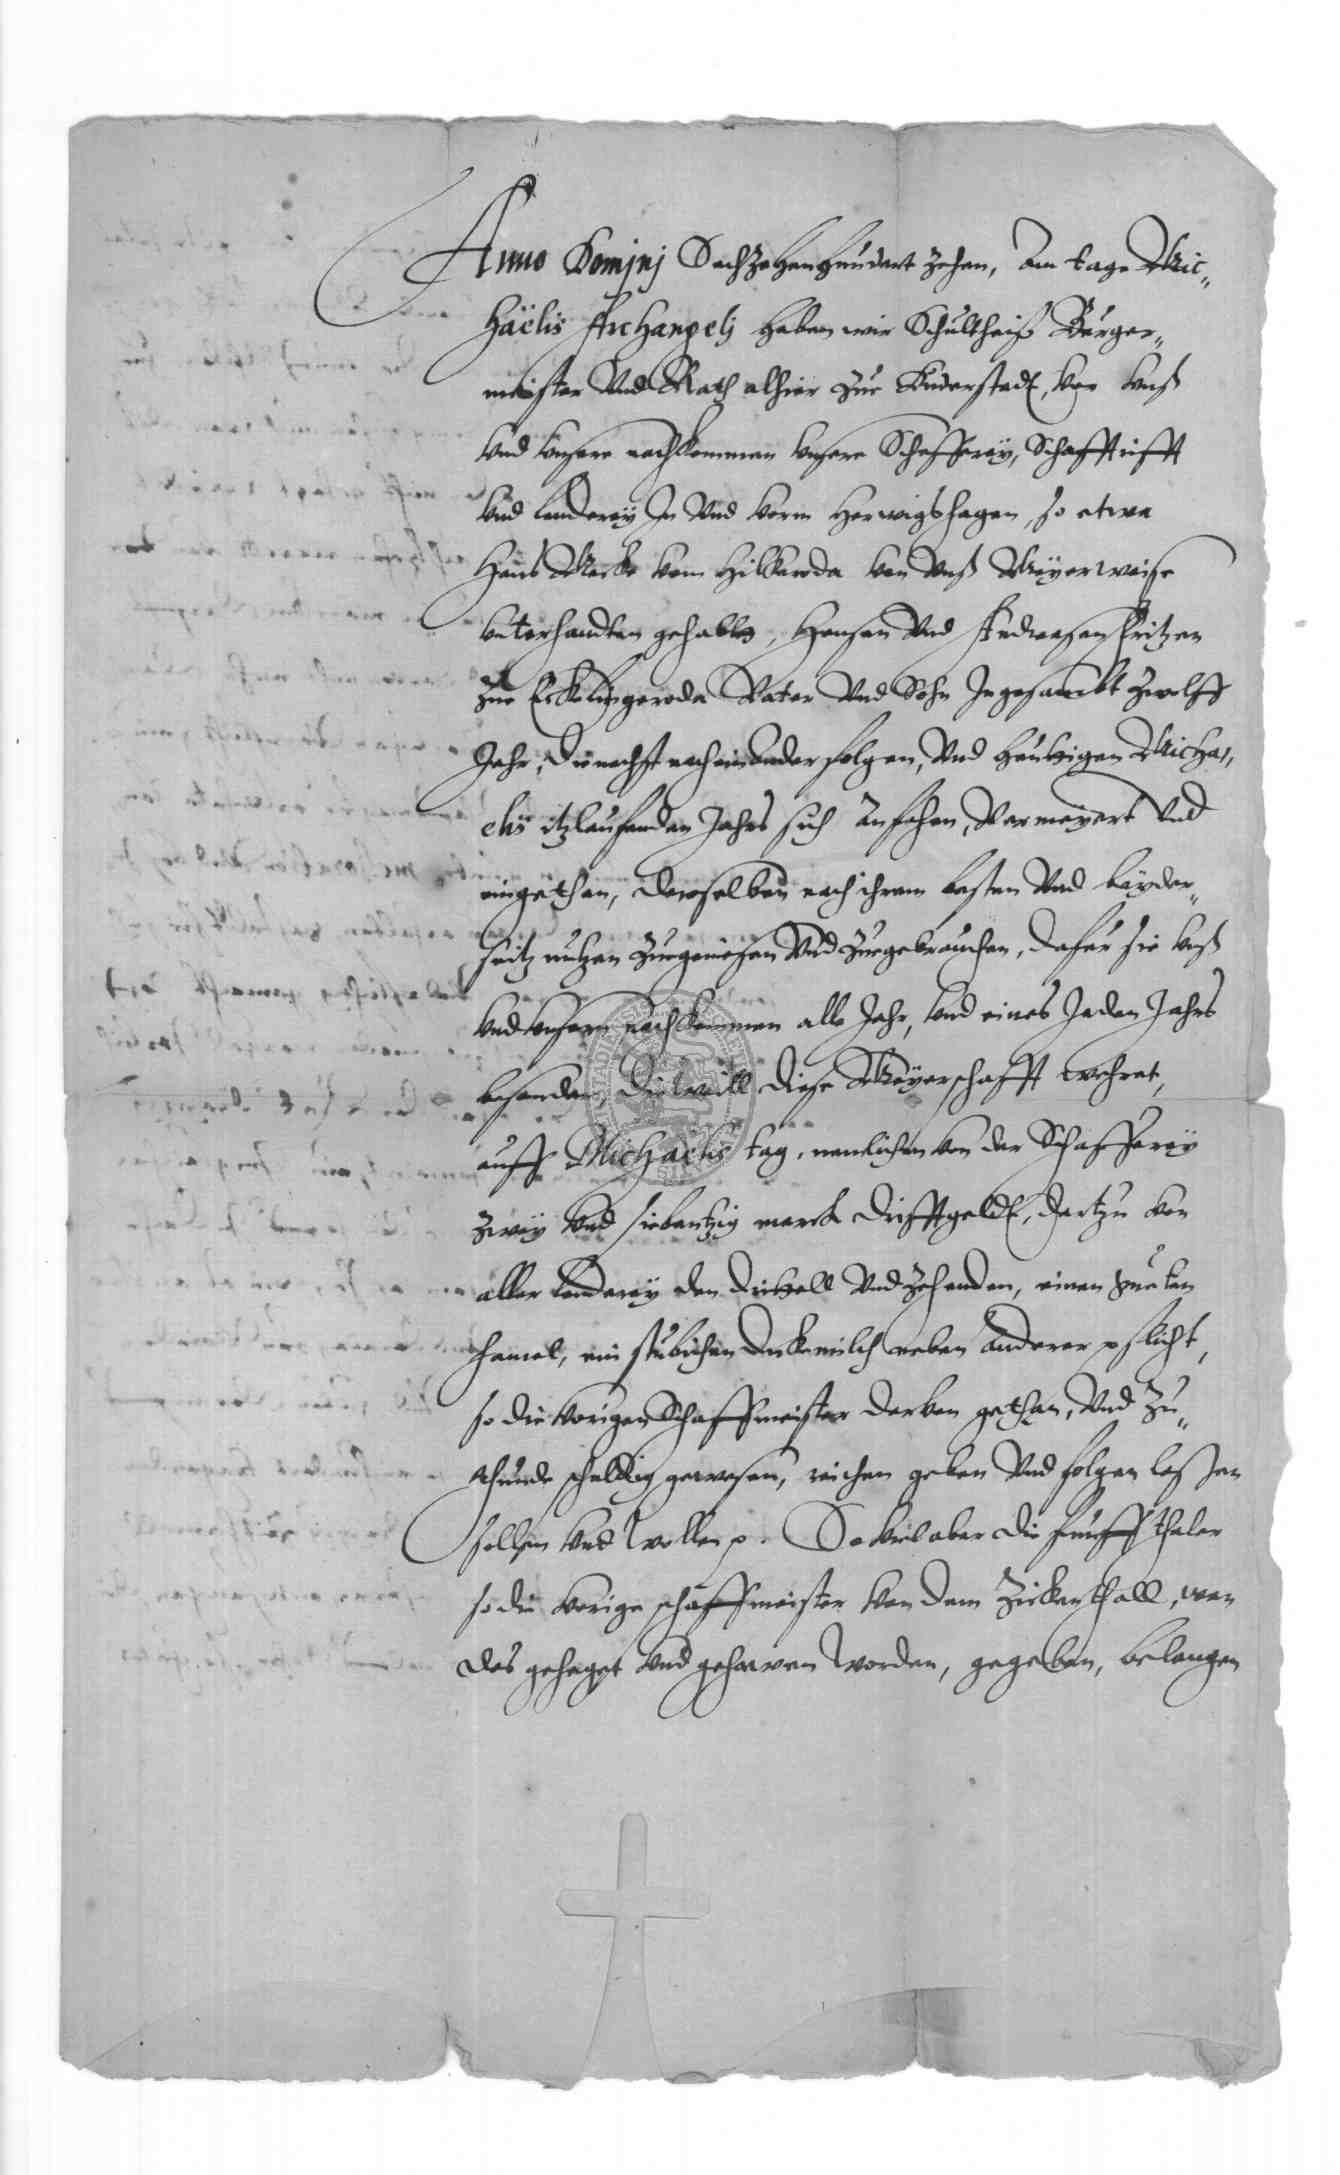 Anno Dominj Sechzehenhundert zehen, Am tage Mic„
haëlis Archangelj haben wir Schultheiß Bürger„
meister Vnd Rath alhier zue Duderstadt, Vor Vnß
Vnd Vnsere nachkommen Vnsere Schefferey, Schafftrifft
Vnd Landerey In Vnd Vorm Herwigshagen, so etwa
Hans Macke Vom Hilkeroda Von Vnß Meyerweise
Vnterhandten gehabtt, Hansen Vnd Andreasen Fritzen
zue Ecklingeroda Vater Vnd Sohn Ingesambt zwolff
Jahr, die nechst nach einander folgen, Vnd heutigen Micha„
elis itzlaufenden Jahrs sich anfahen, Vermeyert Vnd
eingethan, deroselben nach ihrem besten Vnd beyder„
seitz nutzen zuegeniesen Vnd zuegebrauchen, dafur sie Vnß
Vnd Vnsern nachkommen alle Jahr, Vnd eines Jeden Jahrs
besonder, dieweill diese Meyerschafft wehret,
auff Michaelis tag, nemlichen Von der Schefferey
zwey Vnd siebentzig marck drifftgeldt, dartzu Von
aller Landerey den drittell Vnd Zehenden, einen guten
hamel, ein stubichen Deckemilch neben anderer pflicht,
so die Vorigen Schaffmeister darVon gethan, Vnd zu„
thunde schuldig gewesen, reichen geben Vnd folgen lassen
sollen Vnd Wollen p. So Viel aber die Funff thaler
so die Vorige schaffmeister Von dem Zickenthall, wen
das geheget Vnd gehawen Worden, gegeben, belangen